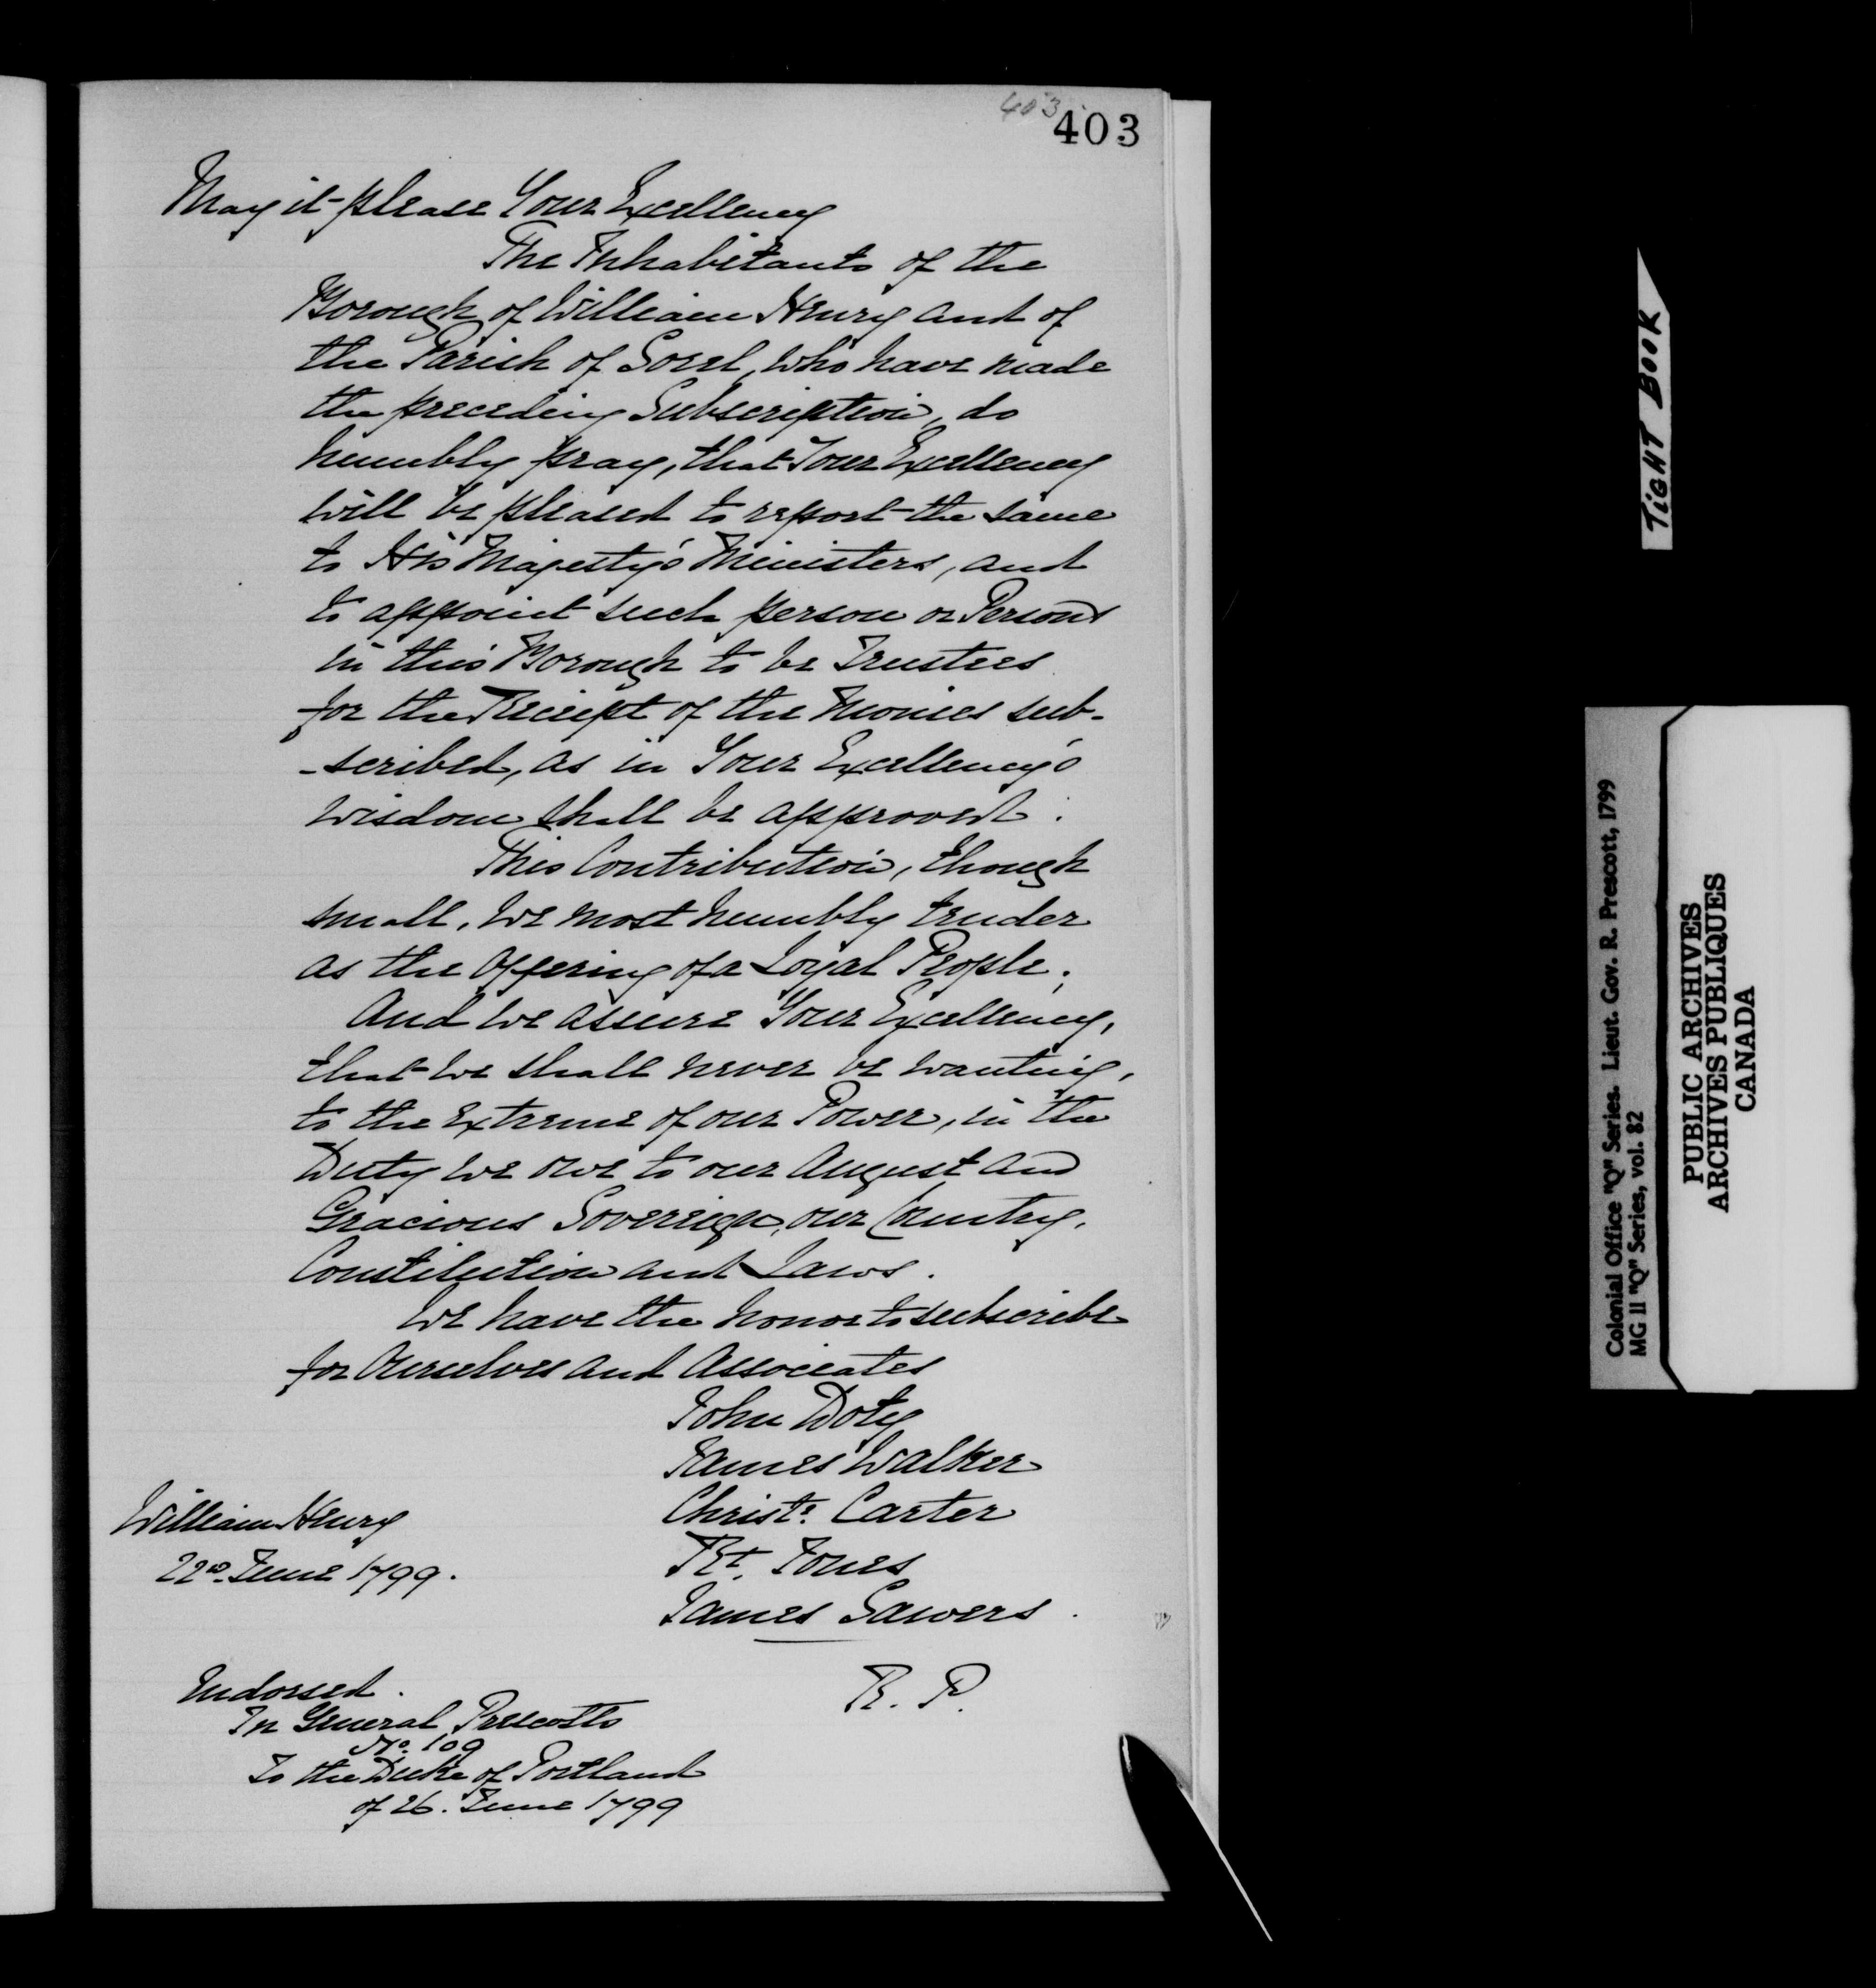 403
403
May it please Your Excellency
The Inhabitants of the
Borough of William Henry and of
the Parish of Sorel, who have made
the preceding Subscription, do
humbly pray, that Your Excellency
will be pleased to report the same
to His Majesty's Ministers, and
to appoint such person or Persons
in this Borough to be Trustees
for the Receipt of the Monies sub-
-scribed, as in Your Excellency's
wisdom shall be approved.
This Contribution, though
small, we most humbly tender
as the Offering of a Loyal People;
And we assure Your Excellency,
that we shall never be wanting,
to the extreme of our Power, in the
Duty we owe to our August and
Gracious Sovereign, our Country,
Constitution and Laws.
We have the honor to subscribe
for Ourselves and Associates
John Doty
James Walker
Christr. Carter
Rt. Jones
James Sawers.
William Henry
22nd. June 1799.
R. P.
Endorsed.
In General Prescott's
No. 109
To the Duke of Portland
of 26. June 1799
TIGHT BOOK
Colonial Office "Q" Series. Lieut. Gov. R. Prescott, 1799
MG 11 "Q" Series, vol. 82
PUBLIC ARCHIVES
ARCHIVES PUBLIQUES
CANADA